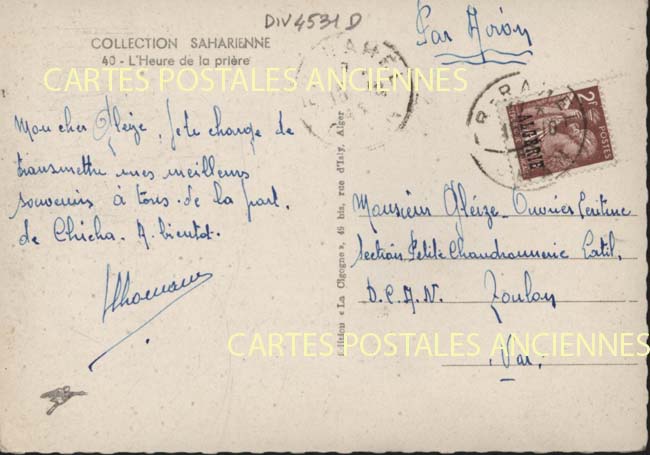 DIV4531 D
COLLECTION SAHARIENNE
40 - L'Heure de la prière
Par Avion
CARTES POSTALES ANCIENNES
2F
POSTES
ALGÉRIE
Mon cher Gleize, je te charge de
transmettre mes meilleurs
souvenirs à tous de la part
de Chicha. A bientot.
Edition « La Cigogne », 49 bis, rue d'Isly, Alger
Monsieur Gleize Ouvrier
Section Petite Chaudronnerie
D.C.A.N. Toulon
Var.
CARTES POSTALES ANCIENNES